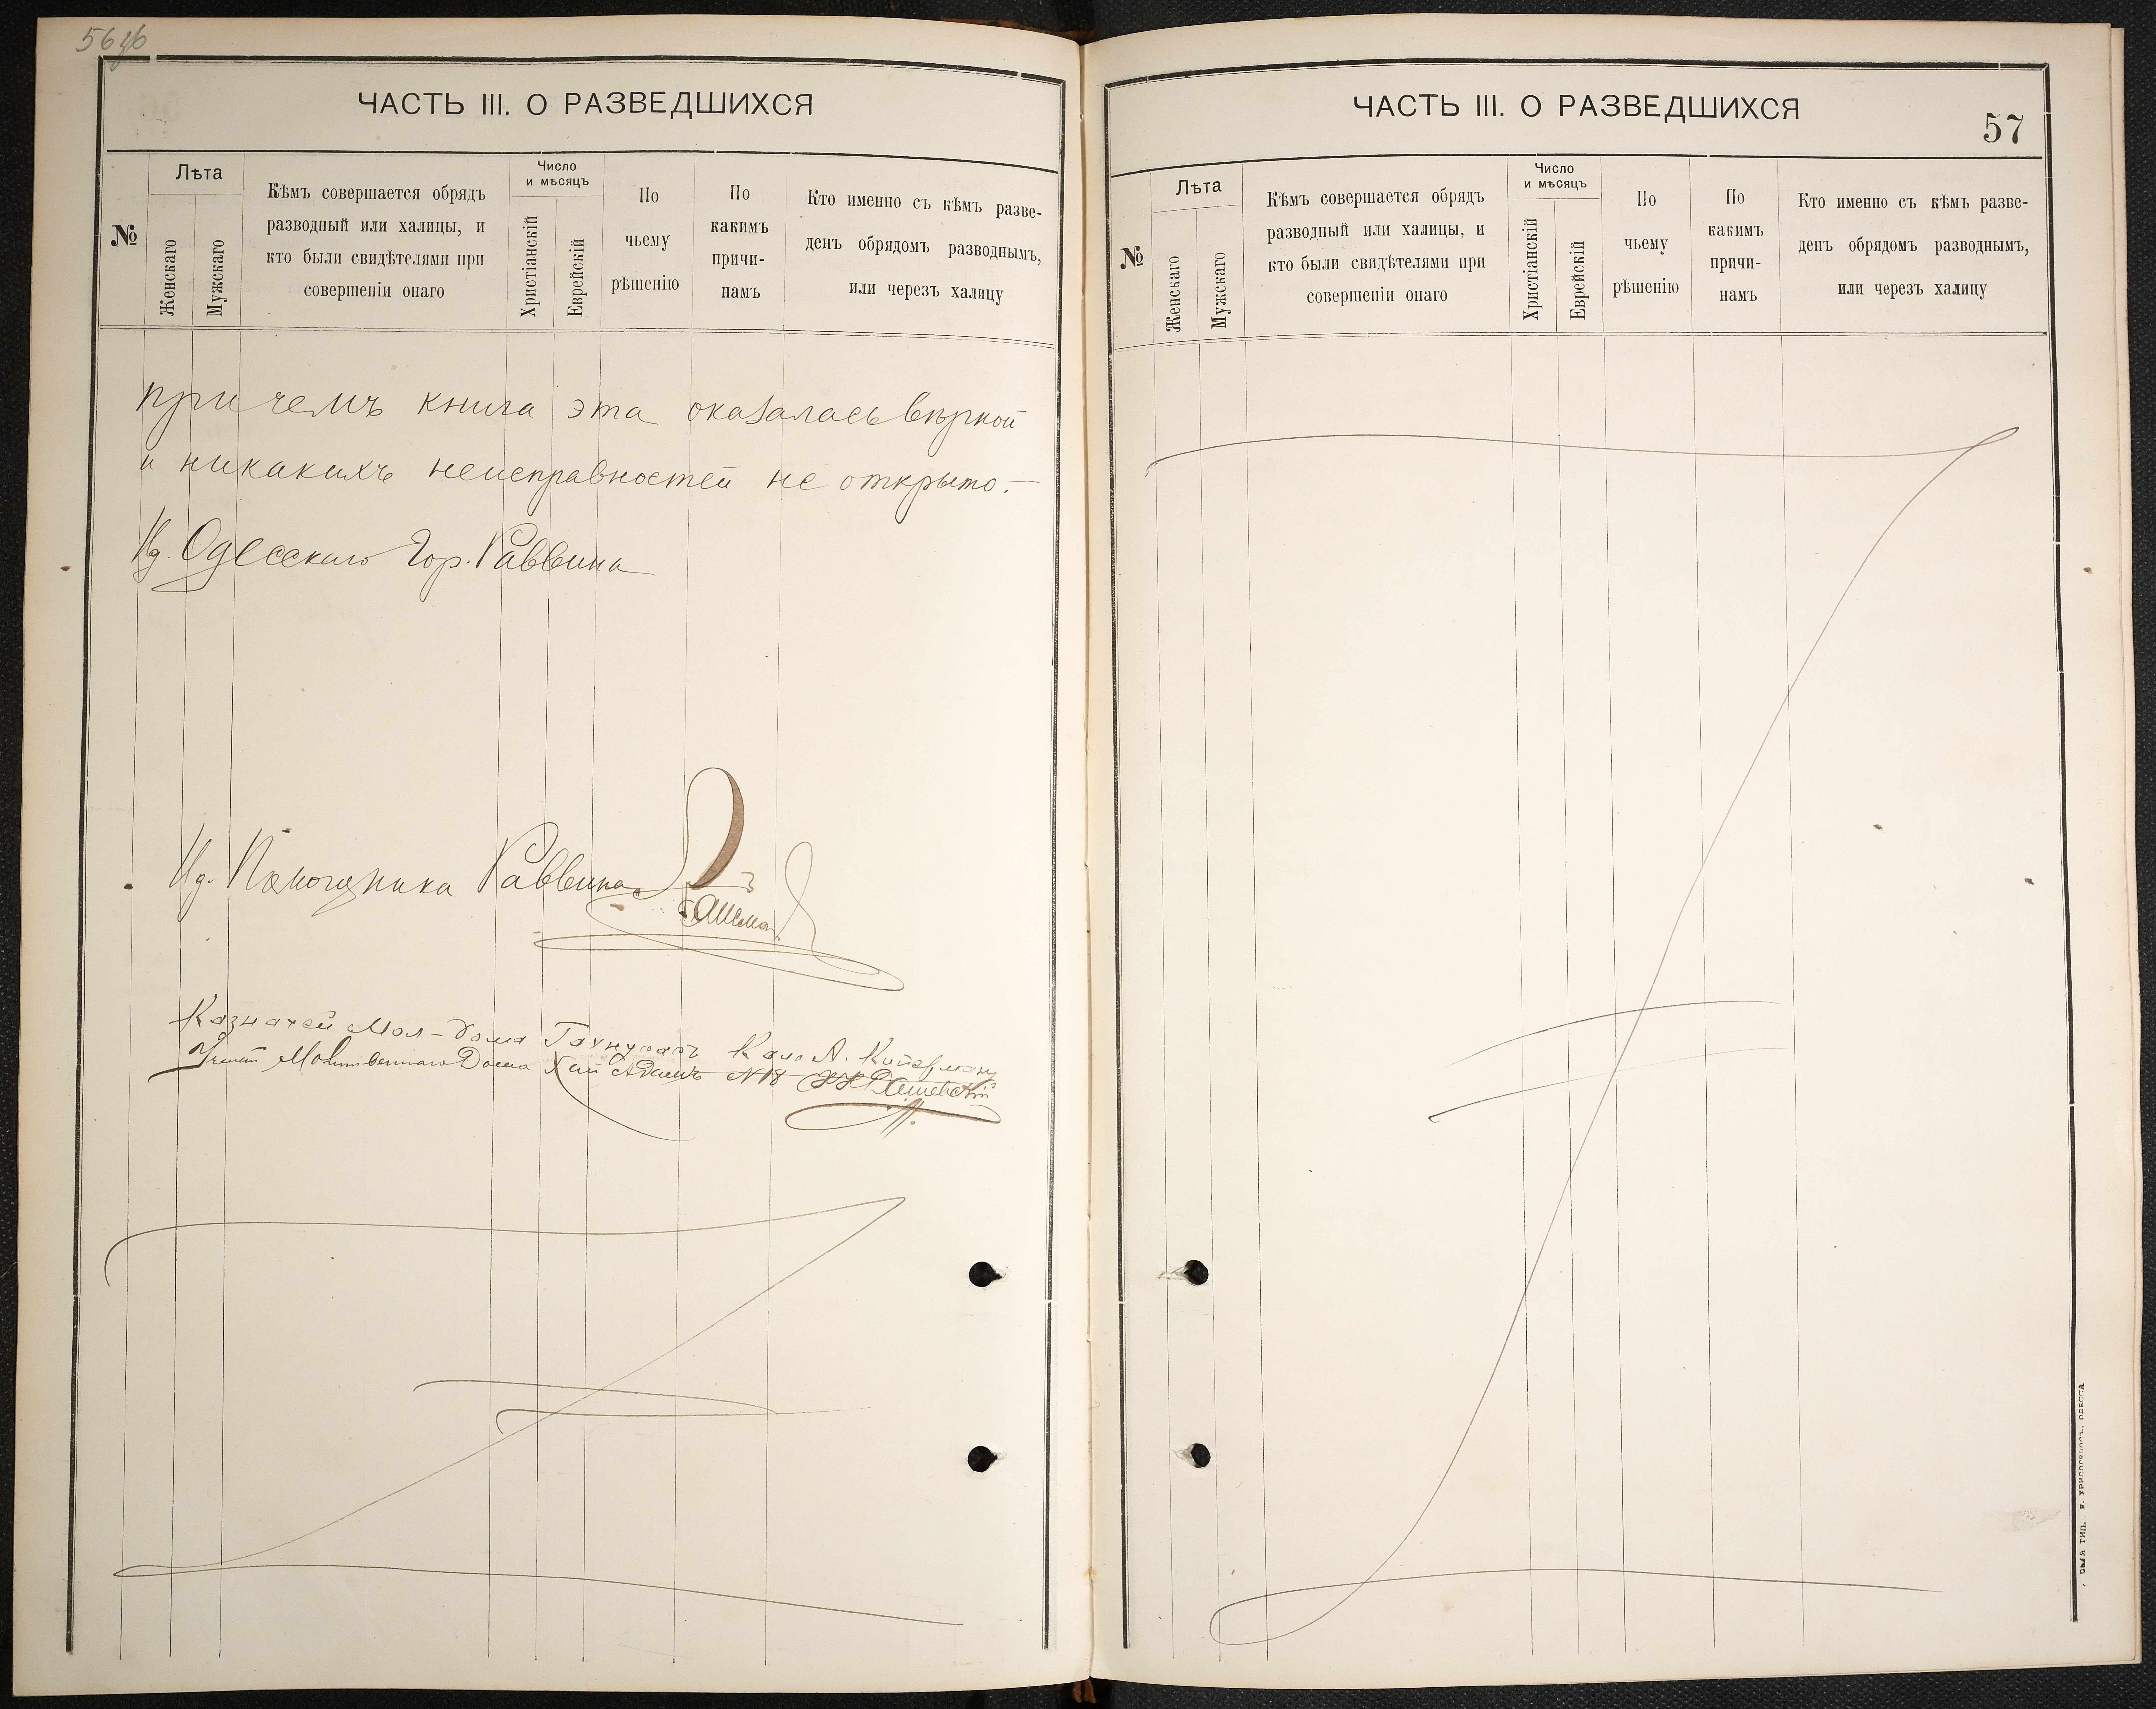 56 об
ЧАСТЬ III. О РАЗВЕДШИХСЯ
№
Лѣта
Женскаго
Мужскаго
Кѣмъ совершается обрядъ
разводный или халицы, и
кто были свидѣтелями при
совершеніи онаго
Число
и мѣсяцъ
Христіанскій
Еврейскій
По
чьему
рѣшенію
По
какимъ
причи-
памъ
Кто именно съ кѣмъ разве-
денъ обрядомъ разводнымъ,
или через халицу
при чемъ книга эта оказалась вѣрной
и никакихъ неисправностей не открыто.—
Ид. Одесскаго Гор. Раввина
Ид. Помощника Раввина
Казначей Мол-дома
Молитвеннаго Дома Хаи Адамъ №18
ЧАСТЬ III. О РАЗВЕДШИХСЯ
57
№
Лѣта
Женскаго
Мужскаго
Кѣмъ совершается обрядъ
разводный или халицы, и
кто были свидѣтелями при
совершеніи онаго
Число
и мѣсяцъ
Христіанскій
Еврейскій
По
чьему
рѣшенію
По
какимъ
причи-
намъ
Кто именно съ кѣмъ разве-
денъ обрядомъ разводнымъ,
или черезъ халицу
ТИП. ОДЕССА